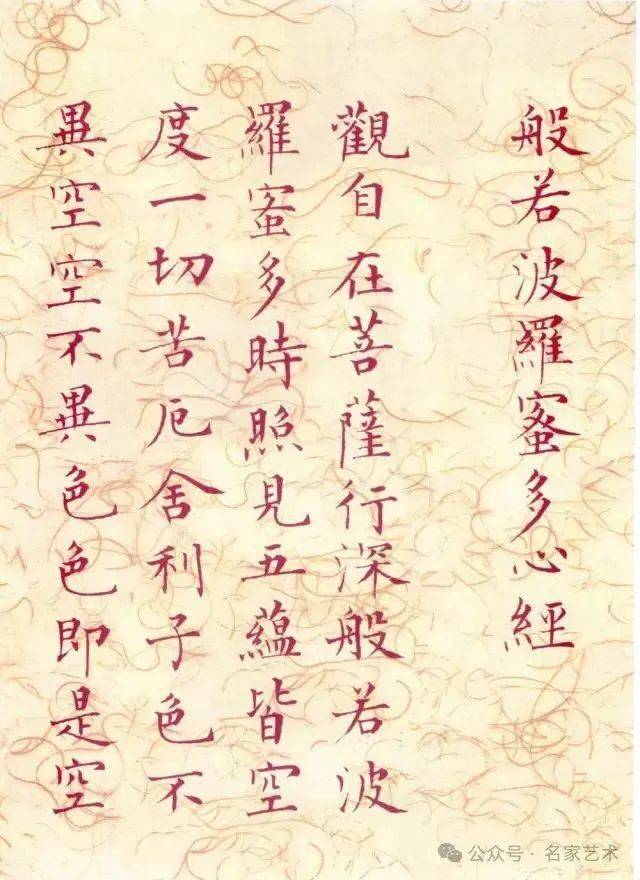 般若波羅蜜多心經
觀自在菩薩行深般若波
羅蜜多時照見五蘊皆空
度一切苦厄舍利子色不
異空空不異色色即是空
公众号·名家艺术